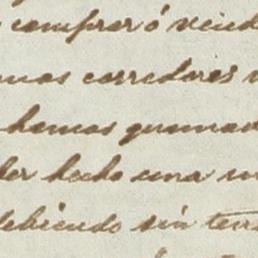 comprar ó vend
mos corredores
hemos quemad
der hecho una
debiendo sin ter